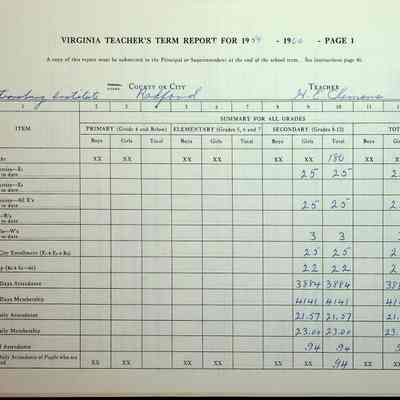 VIRGINIA TEACHER'S TERM REPORT FOR 1959 - 1960 - PAGE 1
A copy of this report must be submitted to the Principal or Superintendent at the end of the school term. See instructions page 4b.
COUNTY OR CITY TEACHER
Institute Radford H. E. Clemens
1 2 3 4 5 6 7 8 9 10 11
SUMMARY FOR ALL GRADES
ITEM PRIMARY (Grade 4 and Below) ELEMENTARY (Grades 5, 6 and 7 SECONDARY (Grades 8-12) TOT
Boys Girls Total Boys Girls Total Boys Girls Total Boys
XX XX XX XX XX XX 180 XX
to date 25 25
to date
All E's
to date 25 25
R's
W's
to date 3 3
City Enrollment (E₁+E₂+R₂) 25 25
22 22
Days Attendance 3884 3884
Days Membership 4141 4141
Daily Attendance 21.57 21.57
Daily Membership 23.00 23.00
Attendance .94 .94
Daily Attendance of Pupils who are
XX XX XX XX XX XX .94 XX